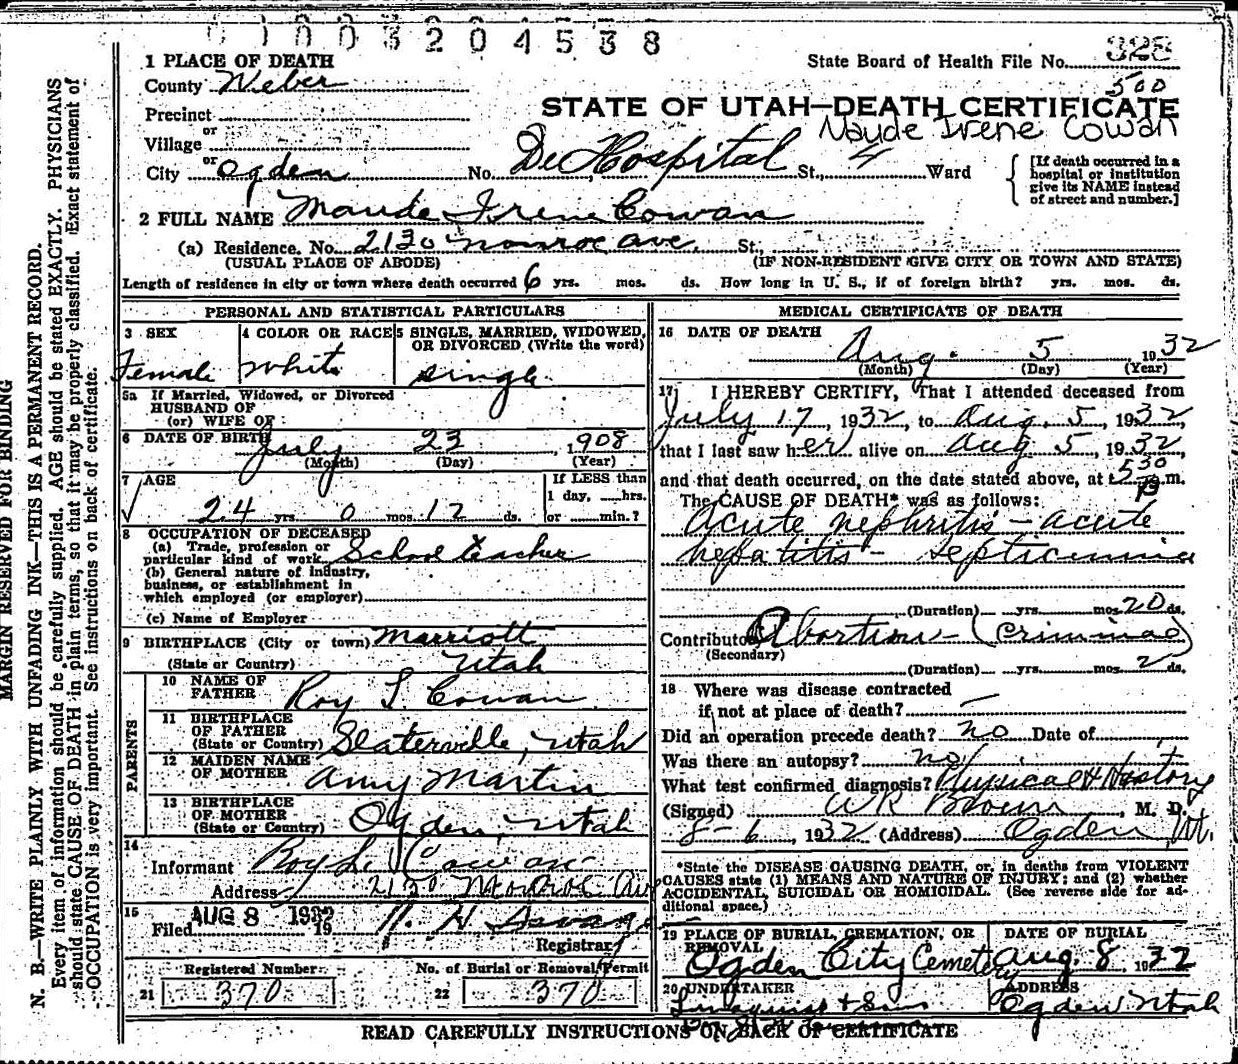 0 1 0 0 3 2 0 4 5 3 8
1 PLACE OF DEATH
State Board of Health File No. 328
County Weber
500
STATE OF UTAH—DEATH CERTIFICATE
Precinct
Maude Irene Cowan
or
Village
or
City Ogden No. Dee Hospital St., 4 Ward
[If death occurred in a hospital or institution give its NAME instead of street and number.]
2 FULL NAME Maude Irene Cowan
(a) Residence. No. 2130 Monroe Ave. St.,
(USUAL PLACE OF ABODE) (IF NON-RESIDENT GIVE CITY OR TOWN AND STATE)
Length of residence in city or town where death occurred 6 yrs. mos. ds. How long in U. S., if of foreign birth? yrs. mos. ds.
PERSONAL AND STATISTICAL PARTICULARS
3 SEX
Female
4 COLOR OR RACE
White
5 SINGLE, MARRIED, WIDOWED, OR DIVORCED (Write the word)
single
5a If Married, Widowed, or Divorced
HUSBAND OF
(or) WIFE OF
6 DATE OF BIRTH July 23, 1908
(Month) (Day) (Year)
7 AGE
24 yrs. 0 mos. 12 ds.
If LESS than
1 day, hrs.
or min.?
8 OCCUPATION OF DECEASED
(a) Trade, profession or
particular kind of work School teacher
(b) General nature of industry,
business, or establishment in
which employed (or employer)
(c) Name of Employer
9 BIRTHPLACE (City or town) Marriott
(State or Country) Utah
PARENTS
10 NAME OF
FATHER Roy L Cowan
11 BIRTHPLACE
OF FATHER
(State or Country) Slaterville, Utah
12 MAIDEN NAME
OF MOTHER Amy Martin
13 BIRTHPLACE
OF MOTHER
(State or Country) Ogden, Utah
14
Informant Roy L. Cowan
Address 2130 Monroe Ave
15
Filed AUG 8 1932 19
Registrar
Registered Number
21 370
No. of Burial or Removal Permit
22 370
MEDICAL CERTIFICATE OF DEATH
16 DATE OF DEATH
Aug. 5 1932
(Month) (Day) (Year)
17 I HEREBY CERTIFY, That I attended deceased from
July 17, 1932, to Aug. 5, 1932,
that I last saw her alive on Aug 5, 1932,
and that death occurred, on the date stated above, at 530 P m.
The CAUSE OF DEATH* was as follows:
Acute nephritis - acute
hepatitis - septicemia
(Duration) yrs. mos 20 ds.
Contributory Abortion - (Criminal)
(Secondary)
(Duration) yrs. mos. 2 ds.
18 Where was disease contracted
if not at place of death? —
Did an operation precede death? no Date of
Was there an autopsy? no
What test confirmed diagnosis? Physical & History
(Signed) WR Brown, M. D.
8-6, 1932 (Address) Ogden Ut.
*State the DISEASE CAUSING DEATH, or, in deaths from VIOLENT
CAUSES state (1) MEANS AND NATURE OF INJURY; and (2) whether
ACCIDENTAL, SUICIDAL OR HOMICIDAL. (See reverse side for ad-
ditional space.)
19 PLACE OF BURIAL, CREMATION, OR
REMOVAL
Ogden City Cemetery
DATE OF BURIAL
Aug. 8, 1932
20 UNDERTAKER
Lindquist & Sons
ADDRESS
Ogden Utah
READ CAREFULLY INSTRUCTIONS ON BACK OF CERTIFICATE
MARGIN RESERVED FOR BINDING
N. B.—WRITE PLAINLY WITH UNFADING INK—THIS IS A PERMANENT RECORD.
Every item of information should be carefully supplied. AGE should be stated EXACTLY. PHYSICIANS
should state CAUSE OF DEATH in plain terms, so that it may be properly classified. Exact statement of
OCCUPATION is very important. See instructions on back of certificate.